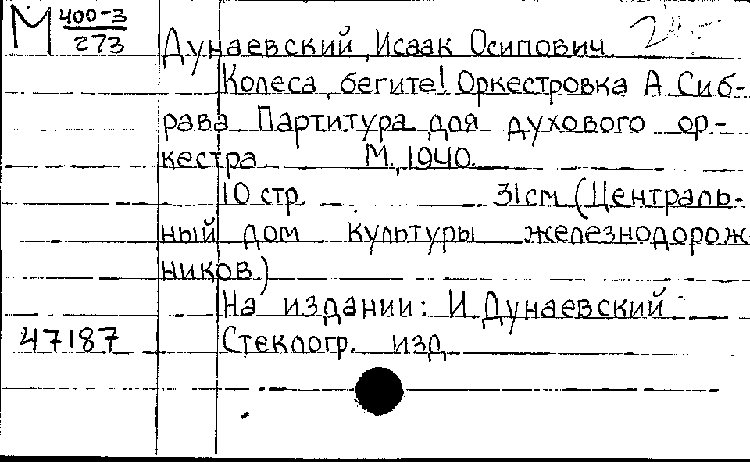 М 400-3
273
Дунаевский, Исаак Осипович
Колеса, бегите! Оркестровка А. Сиб-
рава Партитура для духового ор-
кестра М., 1940.
10 стр. 31 см (Централь-
ный дом культуры железнодорож
ников)
На издании: И. Дунаевский
47187 Стеклогр. изд.